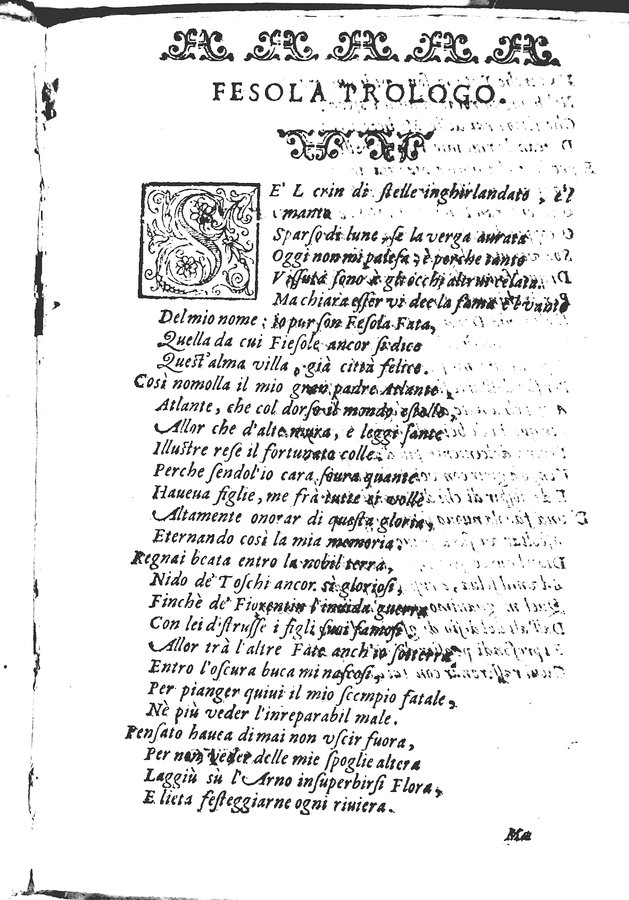 FESOLA PROLOGO.
SE'L crin di stelle inghirlandato, e'l
manto
Sparso di lune, se la verga aurata
Oggi non mi palesa; è perche tanto
Vissuta sono à gli occhi altrui celata.
Ma chiara esser vi dee la fama e'l vanto
Del mio nome: io pur son Fesola Fata,
Quella da cui Fiesole ancor si dice
Quest'alma villa, già città felice.
Così nomolla il mio gran padre Atlante,
Atlante, che col dorso il mondo estolle,
Allor che d'alte mura, e leggi sante
Illustre rese il fortunato colle.
Perche sendol'io cara soura quante
Haueua figlie, me frà tutte ei volle
Altamente onorar di questa gloria,
Eternando così la mia memoria.
Regnai beata entro la nobil terra,
Nido de' Toschi ancor sì gloriosi,
Finchè de' Fiorentin l'inuida guerra
Con lei distrusse i figli suoi famosi
Allor trà l'altre Fate anch'io sotterra
Entro l'oscura buca mi nascosi,
Per pianger quiui il mio scempio fatale,
Nè più veder l'inreparabil male.
Pensato hauea di mai non vscir fuora,
Per non veder delle mie spoglie altera
Laggiù sù l'Arno insuperbirsi Flora,
E lieta festeggiarne ogni riuiera.
Ma